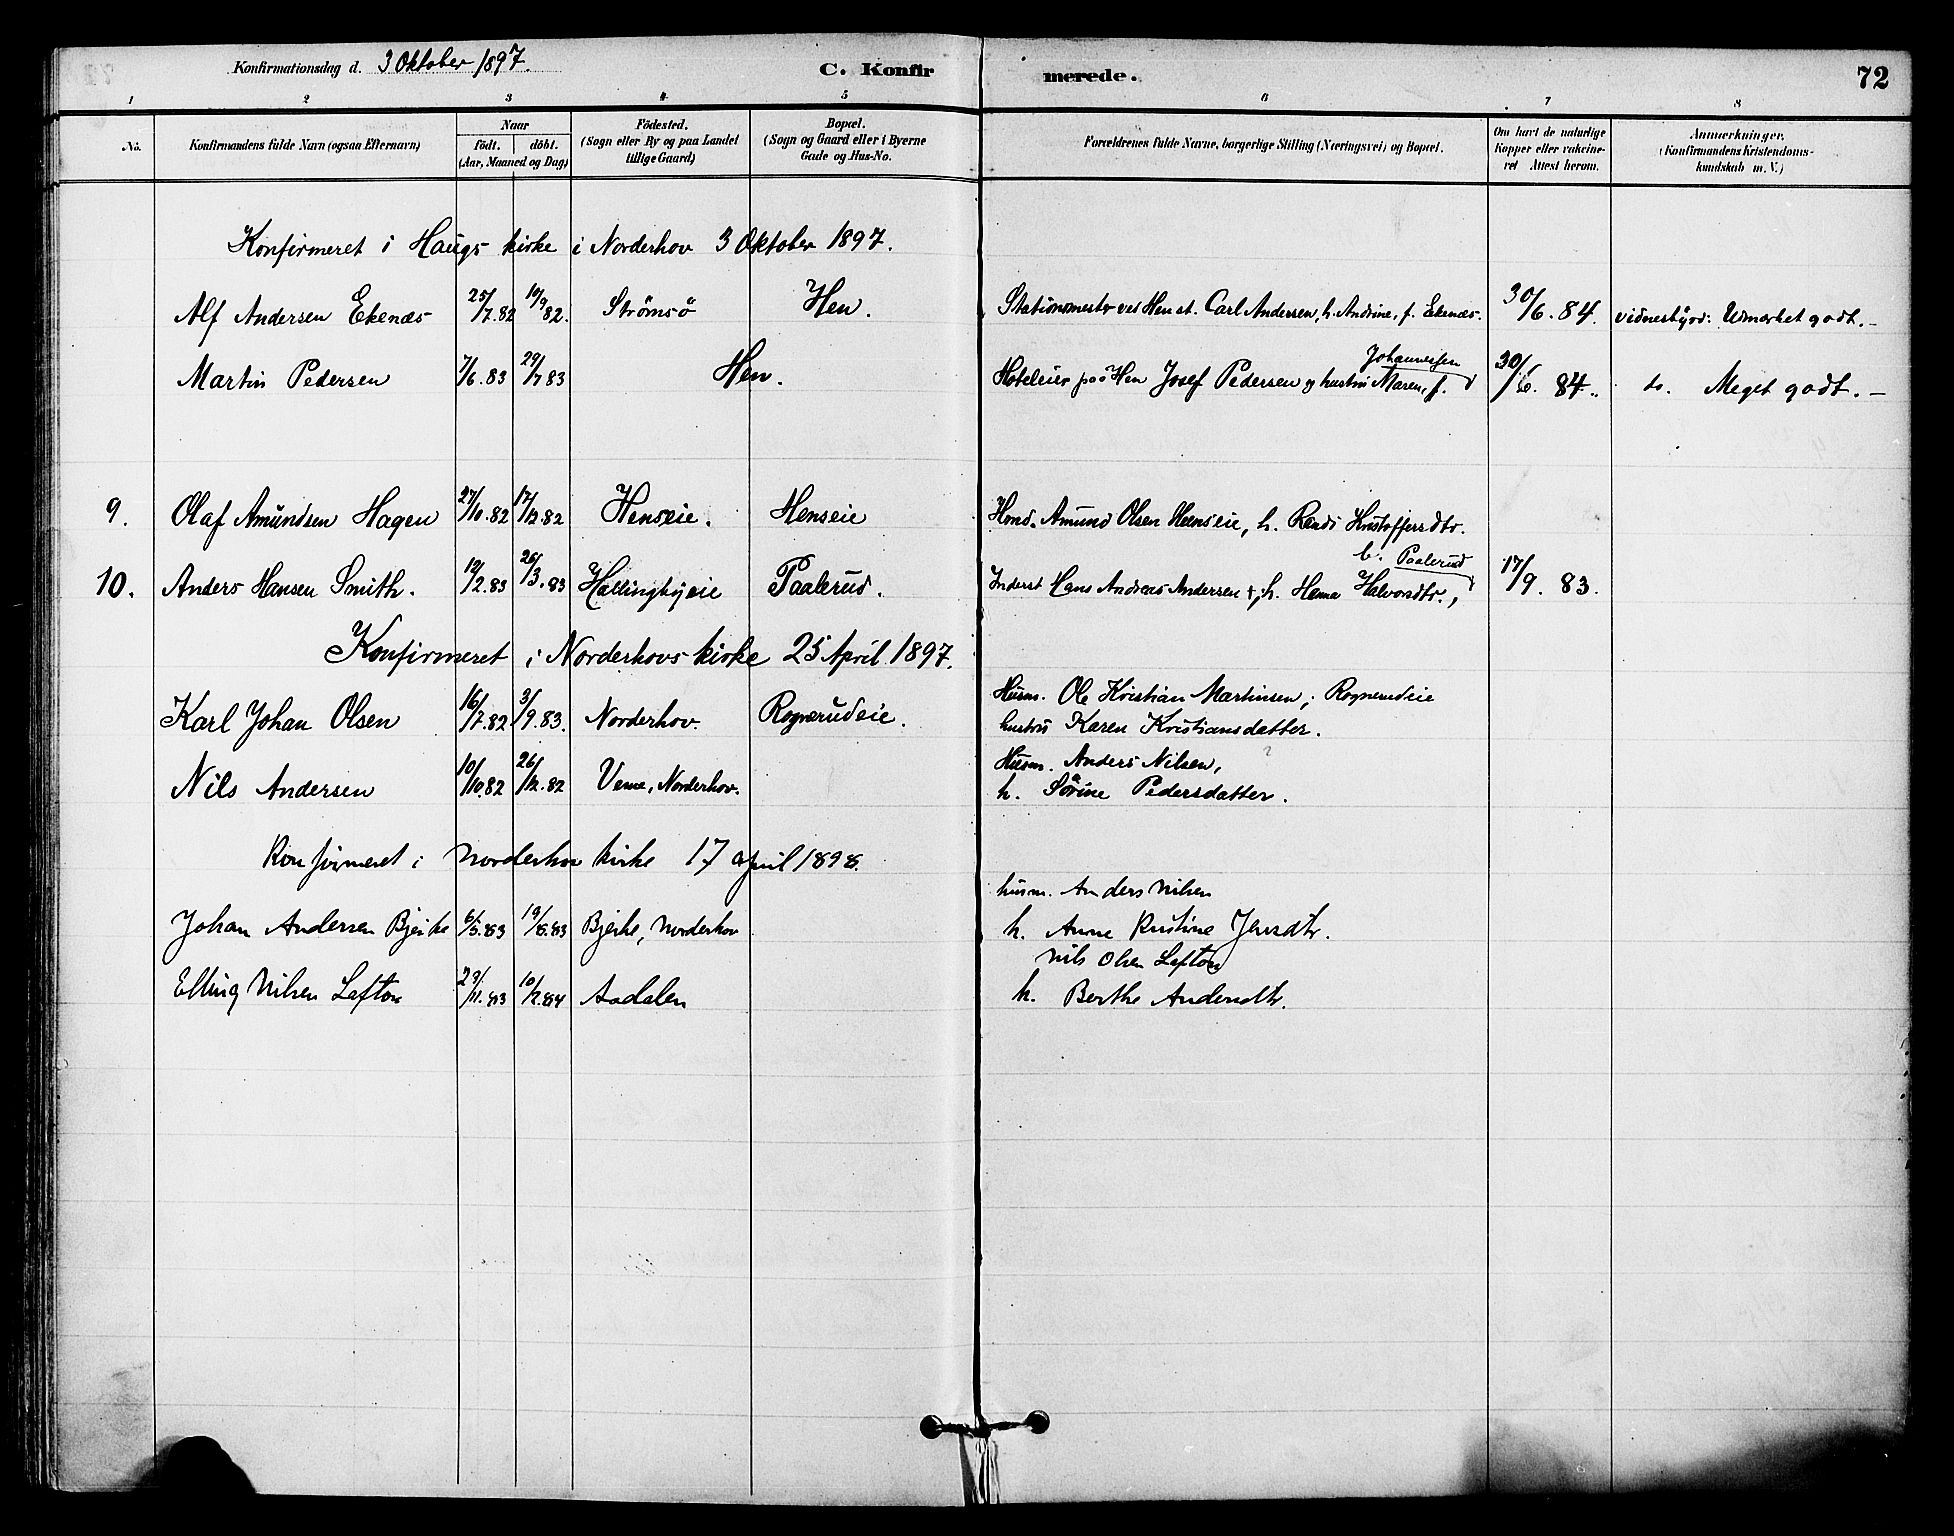 Konfirmationsdag d. 3 Oktober 1897.
C. Konfir merede. 72
1 2 3 4 5 6 7 8
No. Konfirmandens fulde Navn (ogsaa Efternavn) Naar födt. döbt. (Aar, Maaned og Dag) Födested. (Sogn eller By og paa Landet tillige Gaard) Bopæl. (Sogn og Gaard eller i Byerne Gade og Hus-No. Forældrenes fulde Navne, borgerlige Stilling (Næringsvei) og Bopæl. Om havt de naturlige Kopper eller vakcineret Attest herom. Anmærkninger. (Konfirmandens Kristendomskundskab m. V.)
Konfirmeret i Haugs kirke i Norderhov 3 Oktober 1897.
Alf Andersen Ekenæs 25/7.82 10/9 82. Strömsö Hen. Stationsmester ved Hen st. Carl Andersen, h. Andrine, f. Ekenæs. 30/6. 84. vidnesbyrd: Udmærket godt. –
Martin Pedersen 7/6.83 29/7 83 Hen. Hoteleier paa Hen Josef Pedersen og hustru Maren, f. Johannessen 30/6. 84.. do. Meget godt. –
9. Olaf Amundsen Hagen 27/10.82 17/12.82 Henseie. Henseie Amund Olsen Henseie, h. Randi Kristoffersdtr.
10. Anders Hansen Smith. 12/2.83 26/3.83 Hallingbyeie Paalerud. Inderst Hans Andreas Andersen &, h. Halvorsdtr., b. Paalerud 17/9. 83.
Konfirmeret i Norderhovs kirke 25 April 1897.
Karl Johan Olsen 16/7.82 3/9.83. Norderhov. Rognerudeie. Husm. Ole Kristian Martinsen, Rognerudeie
hustru Karen Kristiansdatter.
Nils Andersen 10/10.82 26/12.82 Veme, Norderhov. Husm. Anders Nilsen,
h. Sörine Pedersdatter.
Konfirmeret i Norderhov kirke 17 april 1898.
Johan Andersen Bjerke 6/5.83 19/8.83 Bjerke, Norderhov husm. Anders Nilsen
h. Anne Kristine Jensdtr.
Elling Nilsen Lafton 29/11.83 10/2.84 Aadalen Nils Olsen Lafton
h. Berthe Andersdtr.